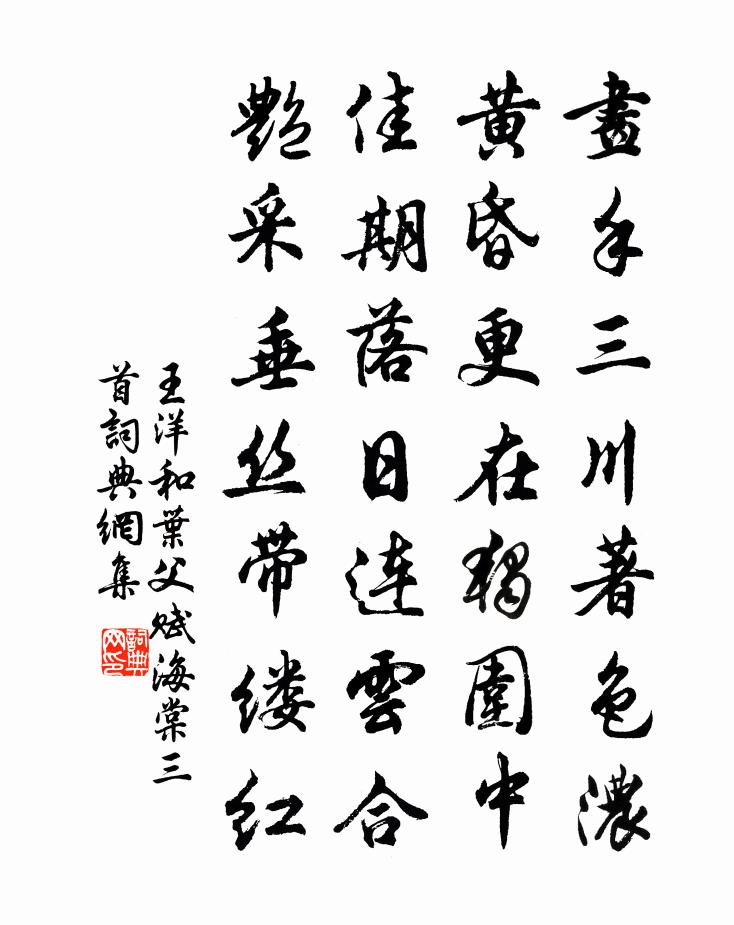 畫手三川著色濃
黃昏更在獨園中
佳期落日連雲合
艷采垂丝帶缕红
王洋和葉父赋海棠三
首詞典網集
詞典网印